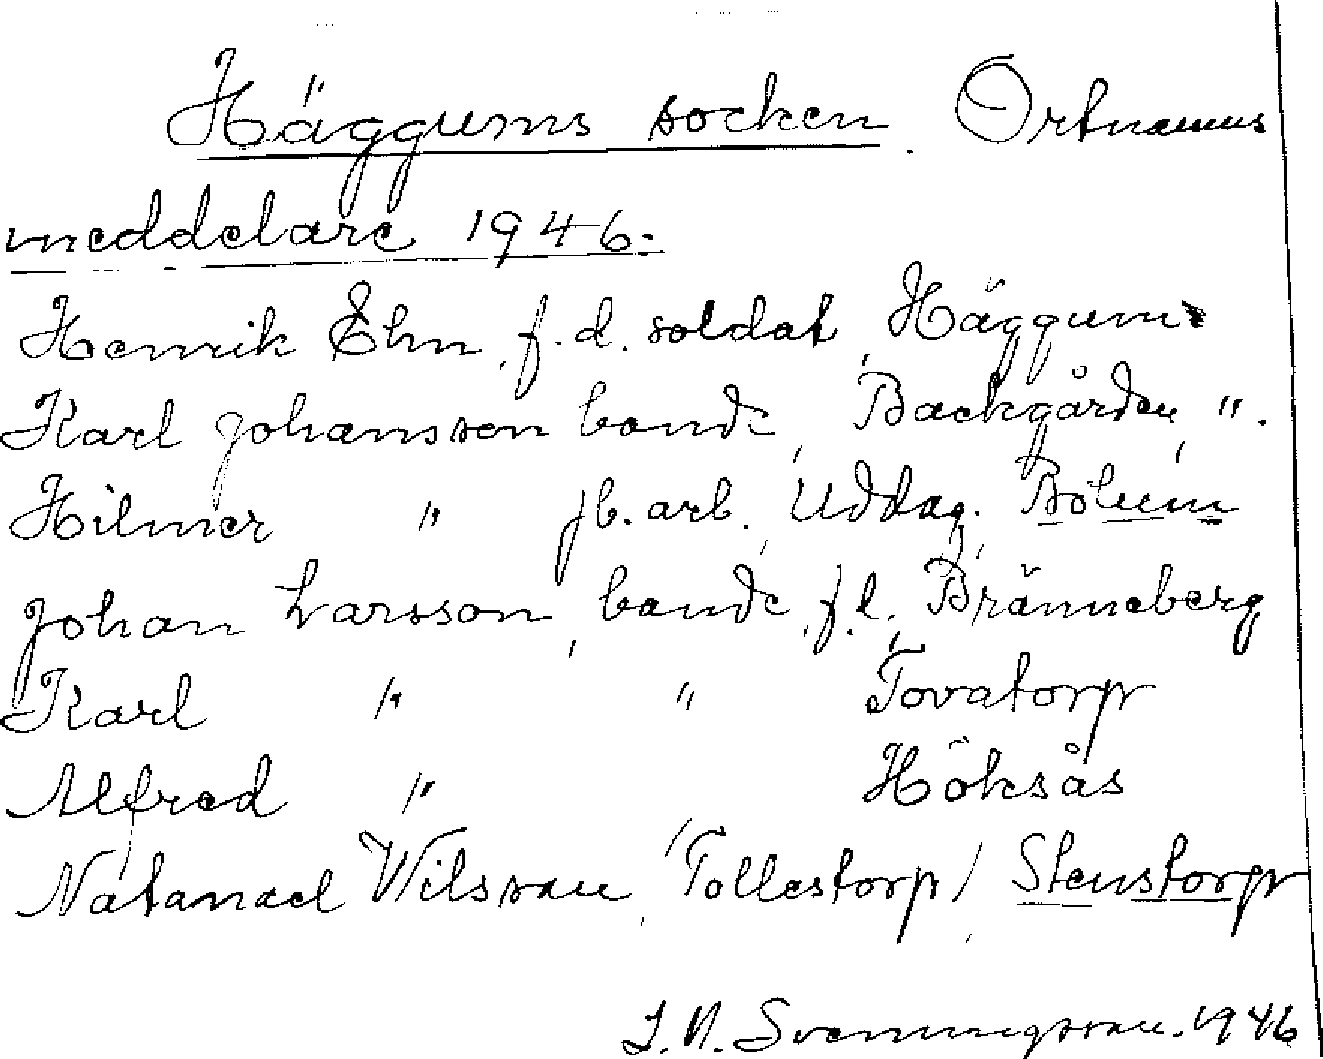 Häggums socken. Ortnamns
meddelare 1946.
Henrik Ehn, f.d. soldat, Häggum
Karl Johansson bonde, Backgården, ".
Hilmer " jb. arb. Uddag. Bolum
Johan Larsson, bonde, f.l., Bränneberg
Karl " " Tovatorp
Alfred " Höksås
Natanael Wilsson, (Tollestorp), Stenstorp
J.N. Svenningsson. 1946